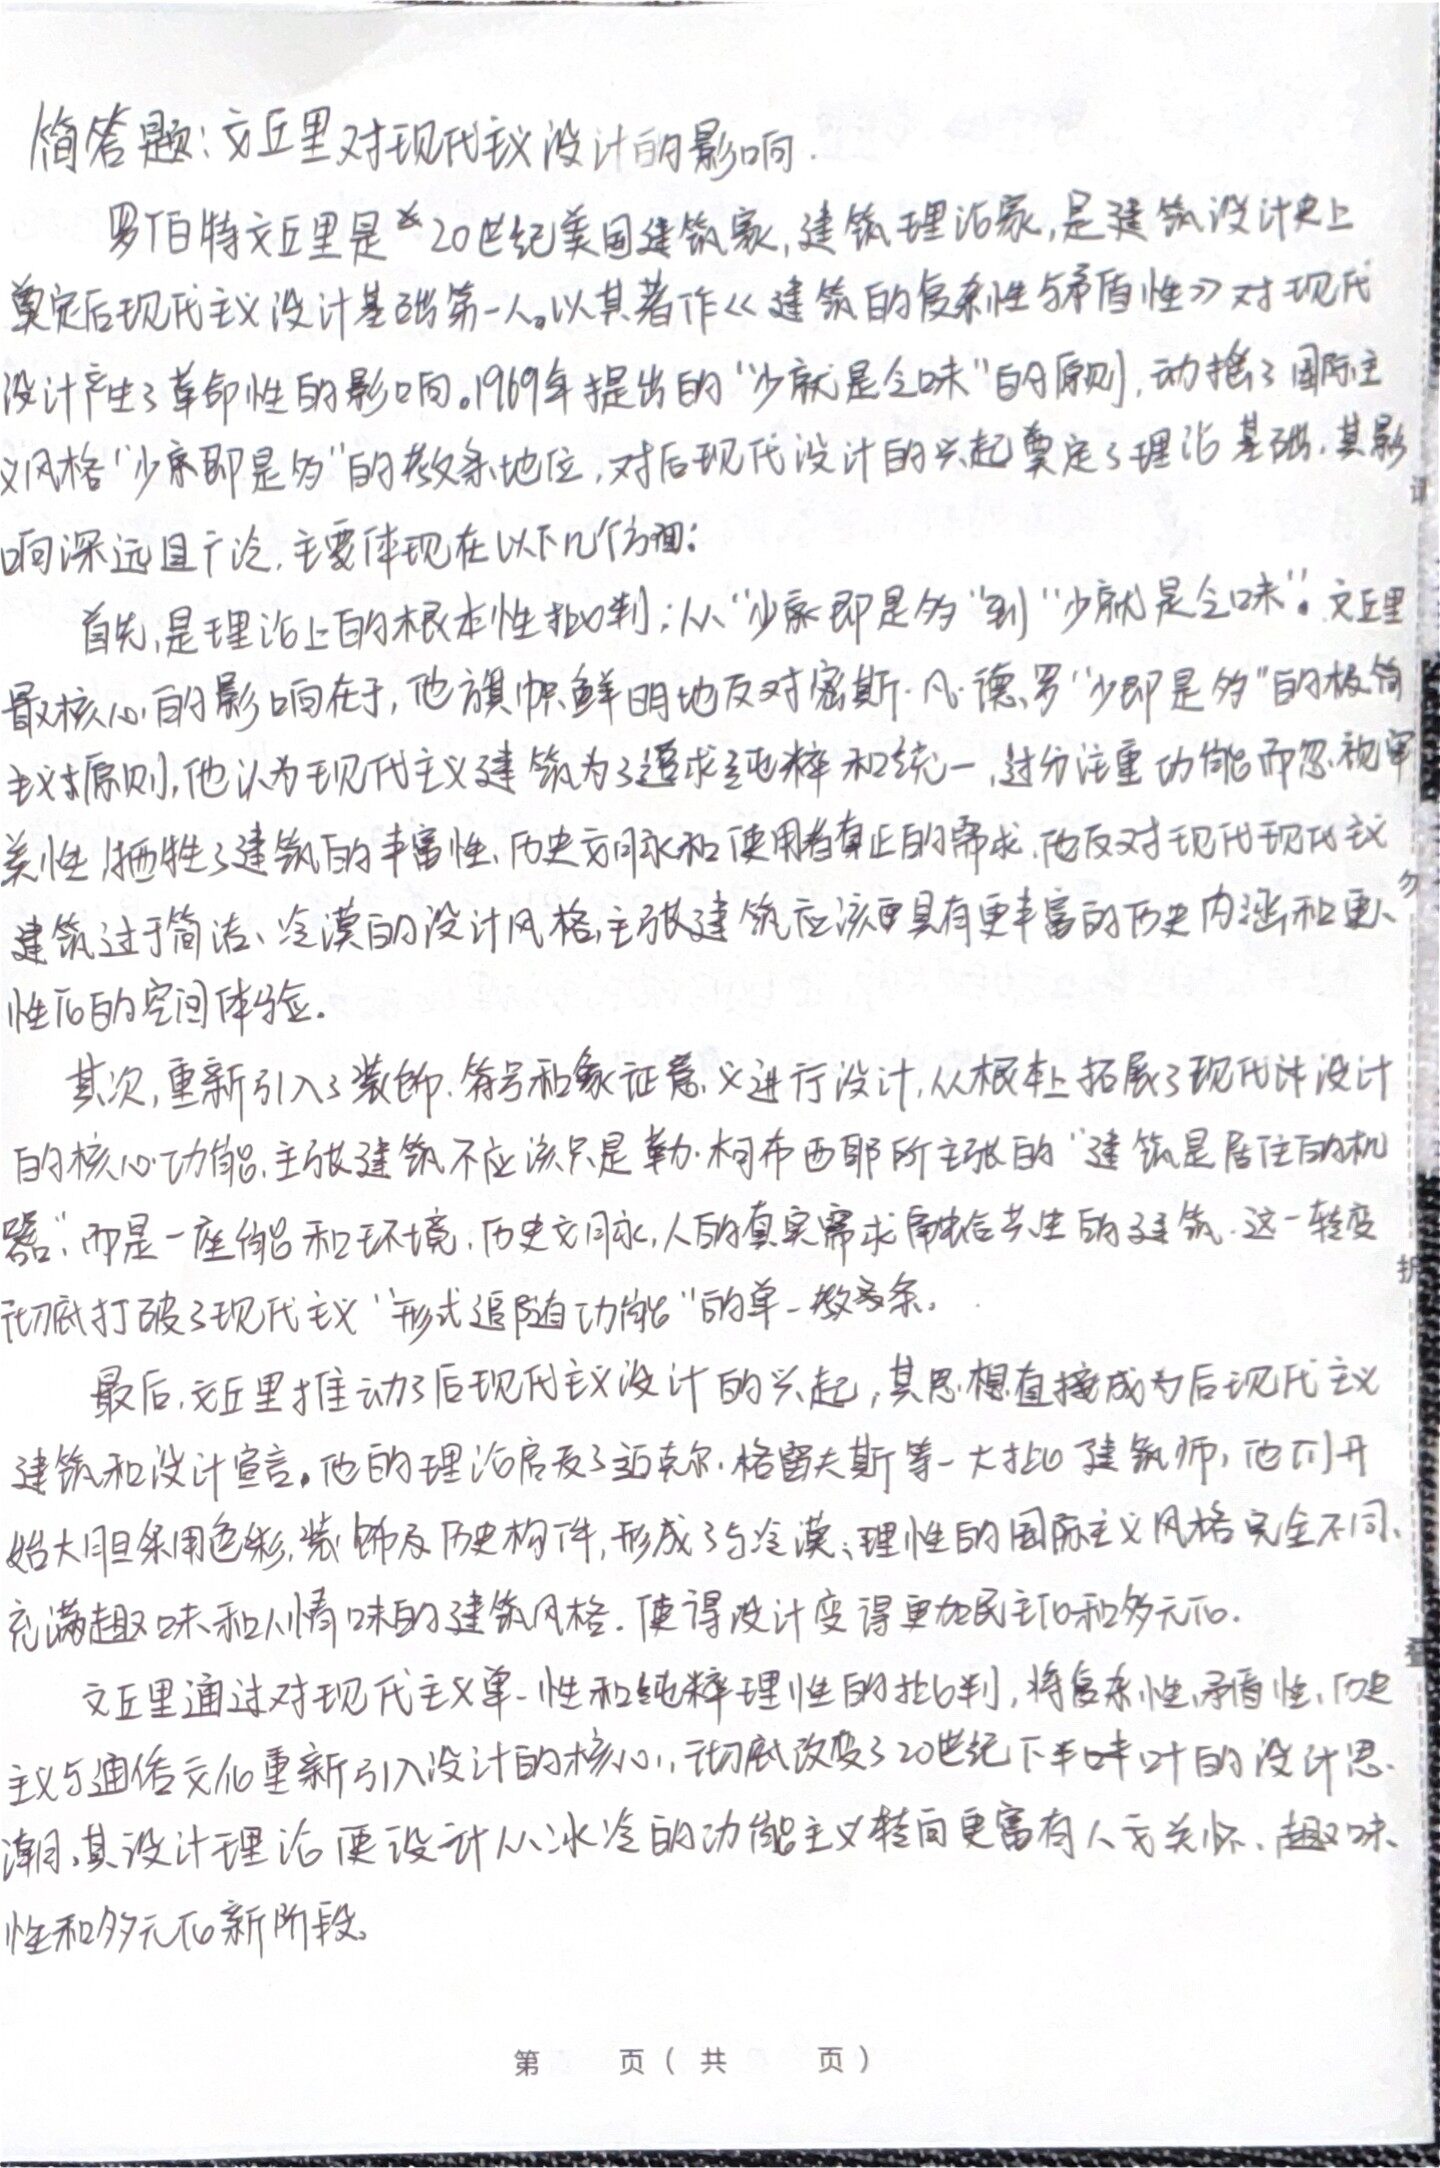 简答题：文丘里对现代主义设计的影响.
罗伯特文丘里是20世纪美国建筑家，建筑理论家，是建筑设计史上
奠定后现代主义设计基础第一人。以其著作《建筑的复杂性与矛盾性》对现代
设计产生了革命性的影响。1969年提出的“少就是乏味”的原则，动摇了国际主
义风格“少即是多”的教条地位，对后现代设计的兴起奠定了理论基础.其影
响深远且广泛.主要体现在以下几个方面：
首先，是理论上的根本性批判；从“少即是多”到“少就是乏味”。文丘里
最核心的影响在于，他旗帜鲜明地反对密斯·凡·德·罗“少即是多”的极简
主义原则，他认为现代主义建筑为了追求纯粹和统一，过分注重功能而忽视审
美性，牺牲了建筑的丰富性、历史文脉和使用者真正的需求.他反对现代现代主义
建筑过于简洁、冷漠的设计风格，主张建筑应该具有更丰富的历史内涵和更人
性化的空间体验.
其次，重新引入了装饰、符号和象征意义进行设计，从根本上拓展了现代设计
的核心功能.主张建筑不应该只是勒·柯布西耶所主张的“建筑是居住的机
器”，而是一座能和环境、历史文脉，人的真实需求融合共生的建筑.这一转变
彻底打破了现代主义“形式追随功能”的单一教条。
最后，文丘里推动了后现代主义设计的兴起，其思想直接成为后现代主义
建筑和设计宣言。他的理论启发了迈克尔·格雷夫斯等一大批建筑师，他们开
始大胆采用色彩，装饰及历史构件，形成了与冷漠、理性的国际主义风格完全不同、
充满趣味和人情味的建筑风格.使得设计变得更加民主化和多元化.
文丘里通过对现代主义单一性和纯粹理性的批判，将复杂性、矛盾性、历史
主义与通俗文化重新引入设计的核心，彻底改变了20世纪下半叶的设计思
潮，其设计理论使设计从冰冷的功能主义转向更富有人文关怀、趣味
性和多元化新阶段。
第 页（共 页）
勿
折